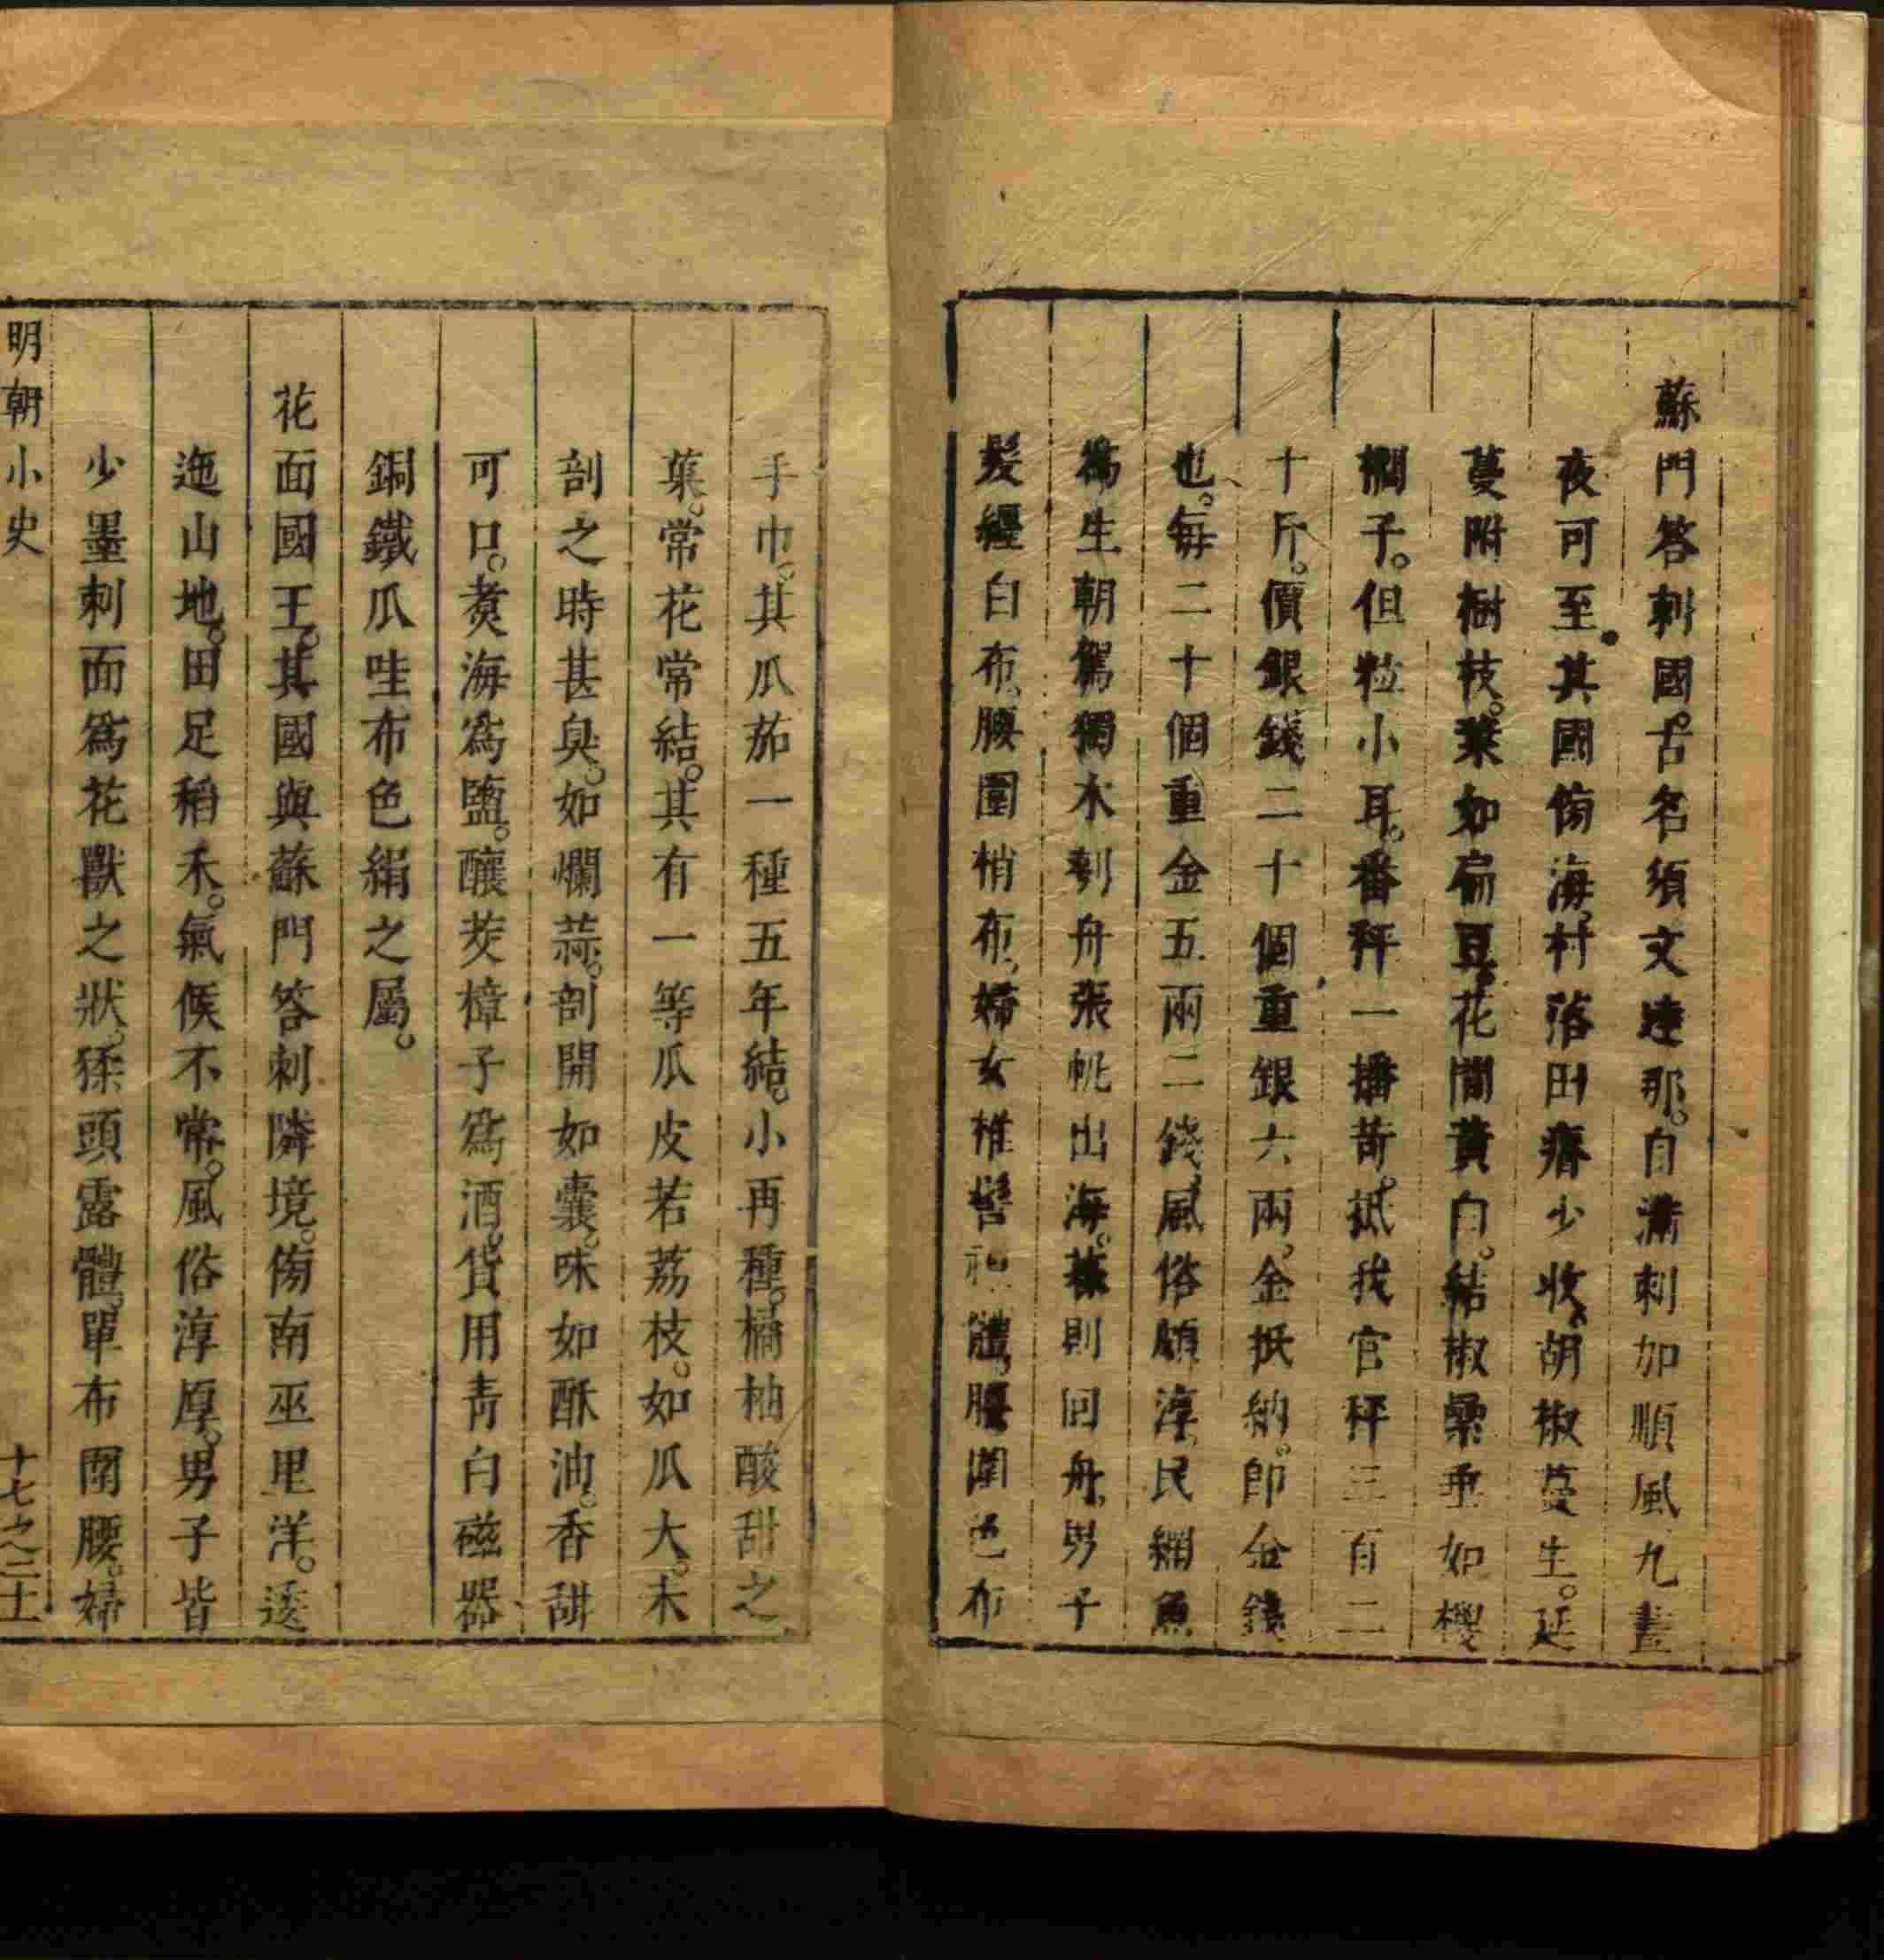 蘇門答剌國。古名須文達那。自滿剌加順風九晝
夜可至。其國傍海。村落田瘠少收。胡椒蔓生。延
蔓附樹枝。葉如扁豆。花間黃白。結椒纍垂如椶
櫚子。但粒小耳。番秤一播荷。抵我官秤三百二
十斤。價銀錢二十個重銀六兩。金抵納。卽金錢
也。每二十個重金五兩二錢。風俗頗淳。民網魚
爲生。朝駕獨木刳舟張帆出海。暮則回舟。男子
髮纏白布。腰圍梢布。婦女椎髻裸體。腰圍色布
手巾。其瓜茄一種五年結。小再種。橘柚酸甜之
菓。常花常結。其有一等瓜皮若荔枝。如瓜大。未
剖之時甚臭。如爛蒜。剖開如囊。味如酥油。香甜
可口。煑海爲鹽。釀茭樟子爲酒。貨用靑白磁器
銅鐵爪哇布色絹之屬。
花面國王。其國與蘇門答剌隣境。傍南巫里洋。逶
迤山地。田足稻禾。氣候不常。風俗淳厚。男子皆
少墨刺面爲花獸之狀。猱頭露體。單布圍腰。婦
明朝小史
十七之二十